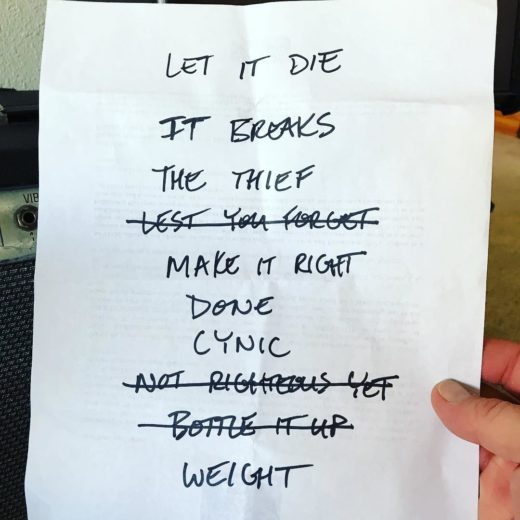 LET IT DIE
IT BREAKS
THE THIEF
LEST YOU FORGET
MAKE IT RIGHT
DONE
CYNIC
NOT RIGHTEOUS YET
BOTTLE IT UP
WEIGHT
VIB